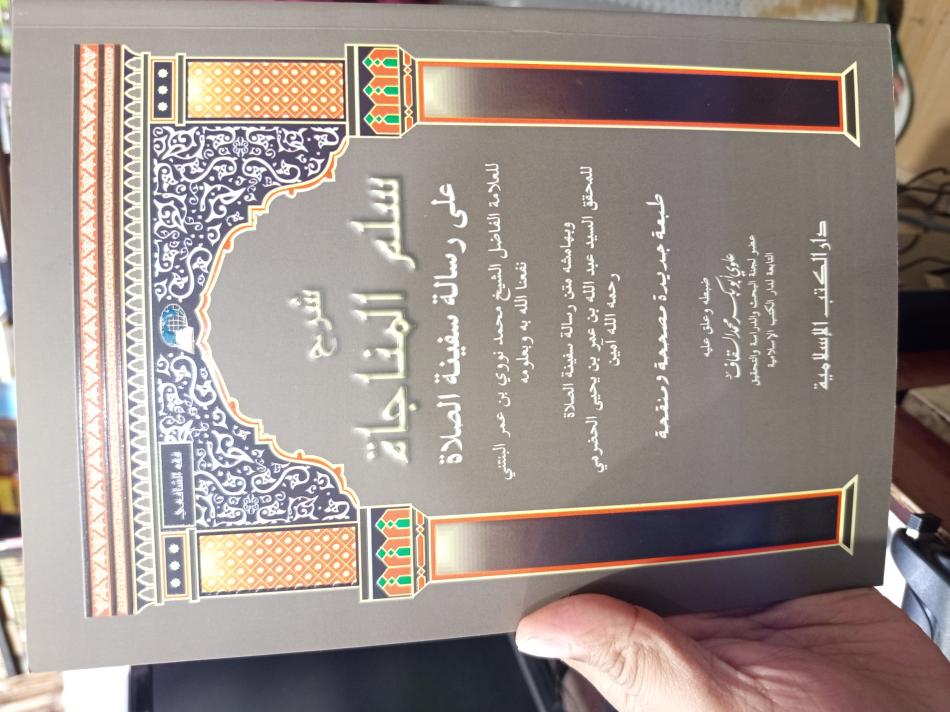 فقه الشافعية
شرح
سلم المناجاة
على رسالة سفينة الصلاة
للعلامة الفاضل الشيخ محمد نووي بن عمر البنتني
نفعنا الله به وبعلومه
وبهامشه متن رسالة سفينة الصلاة
للمحقق السيد عبد الله بن عمر بن يحيى الحضرمي
رحمه الله آمين
طبعة جديدة مصححة ومنقحة
ضبطه وعلق عليه
علوي أبو بكر محمد السقاف
عضو لجنة البحث والدراسة والتحقيق
التابعة لدار الكتب الإسلامية
دار الكتب الإسلامية